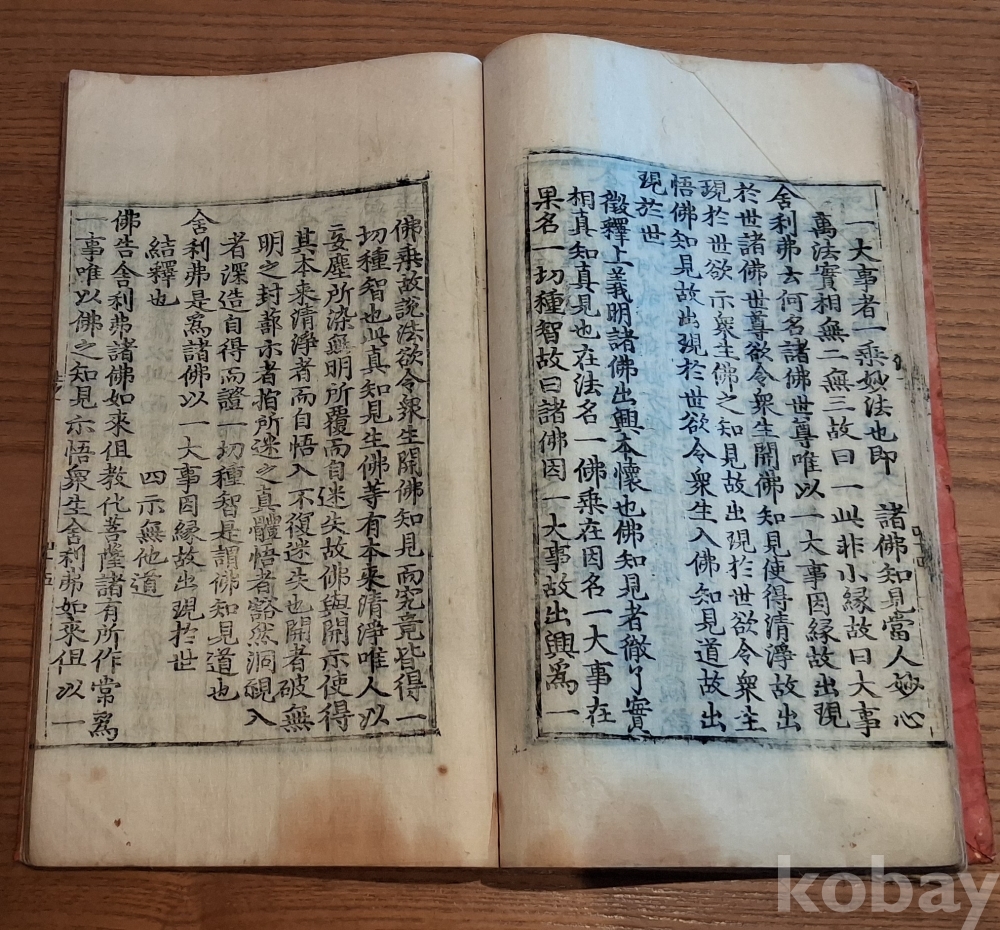 一大事者一乘妙法也即 諸佛知見當人妙心
萬法實相無二無三故曰一此非小緣故曰大事
舍利弗云何名諸佛世尊唯以一大事因緣故出現
於世諸佛世尊欲令衆生開佛知見使得清淨故出
現於世欲示衆生佛之知見故出現於世欲令衆生
悟佛知見故出現於世欲令衆生入佛知見道故出
現於世
徵釋上義明諸佛出興本懷也佛知見者徹了實
相真知真見也在法名一佛乘在因名一大事在
果名一切種智故曰諸佛因一大事故出興爲一
佛乘故說法欲令衆生開佛知見而究竟皆得一
切種智也此真知見生佛等有本來清淨唯人以
妄塵所染無明所覆而自迷失故佛與開示使得
其本來清淨者而自悟入不復迷失也開者破無
明之封蔀示者指所迷之真體悟者豁然洞覩入
者深造自得而證一切種智是謂佛知見道也
舍利弗是爲諸佛以一大事因緣故出現於世
結釋也 四示無他道
佛告舍利弗諸佛如來但教化菩薩諸有所作常爲
一事唯以佛之知見示悟衆生舍利弗如來但以一
kobay